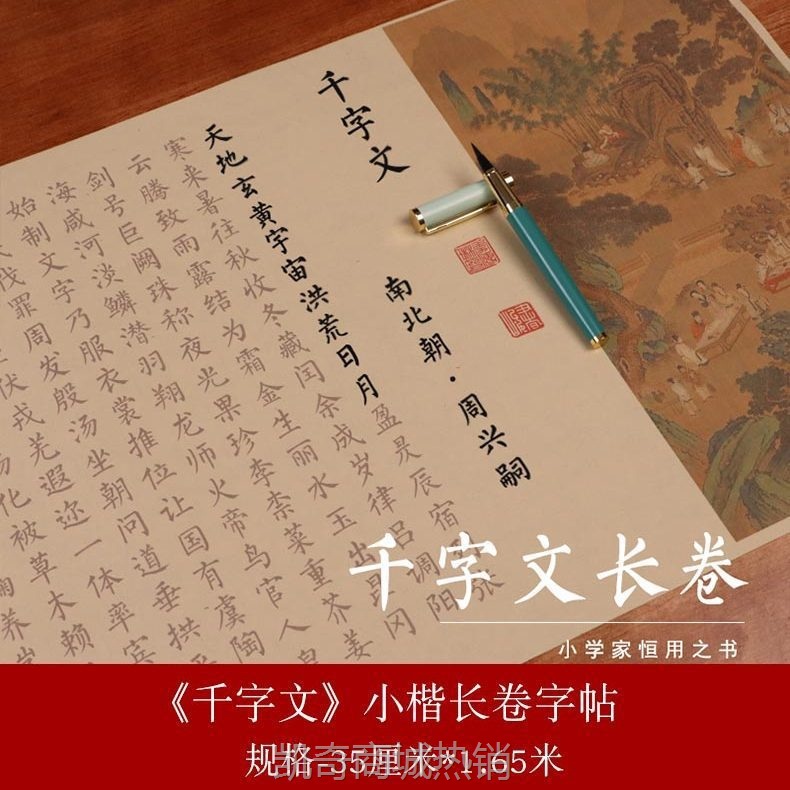 千字文
南北朝·周兴嗣
天地玄黄宇宙洪荒日月盈昃辰宿张
寒来暑往秋收冬藏闰余成岁律吕调阳
云腾致雨露结为霜金生丽水玉出昆冈
剑号巨阙珠称夜光果珍李柰菜重芥姜
海咸河淡鳞潜羽翔龙师火帝鸟官人皇
始制文字乃服衣裳推位让国有虞陶
伐罪周发殷汤坐朝问道垂拱平
伏戎羌遐迩一体率宾
化被草木赖
养
千字文长卷
小学家恒用之书
《千字文》小楷长卷字帖
规格-35厘米*1.65米
凯奇商城热销